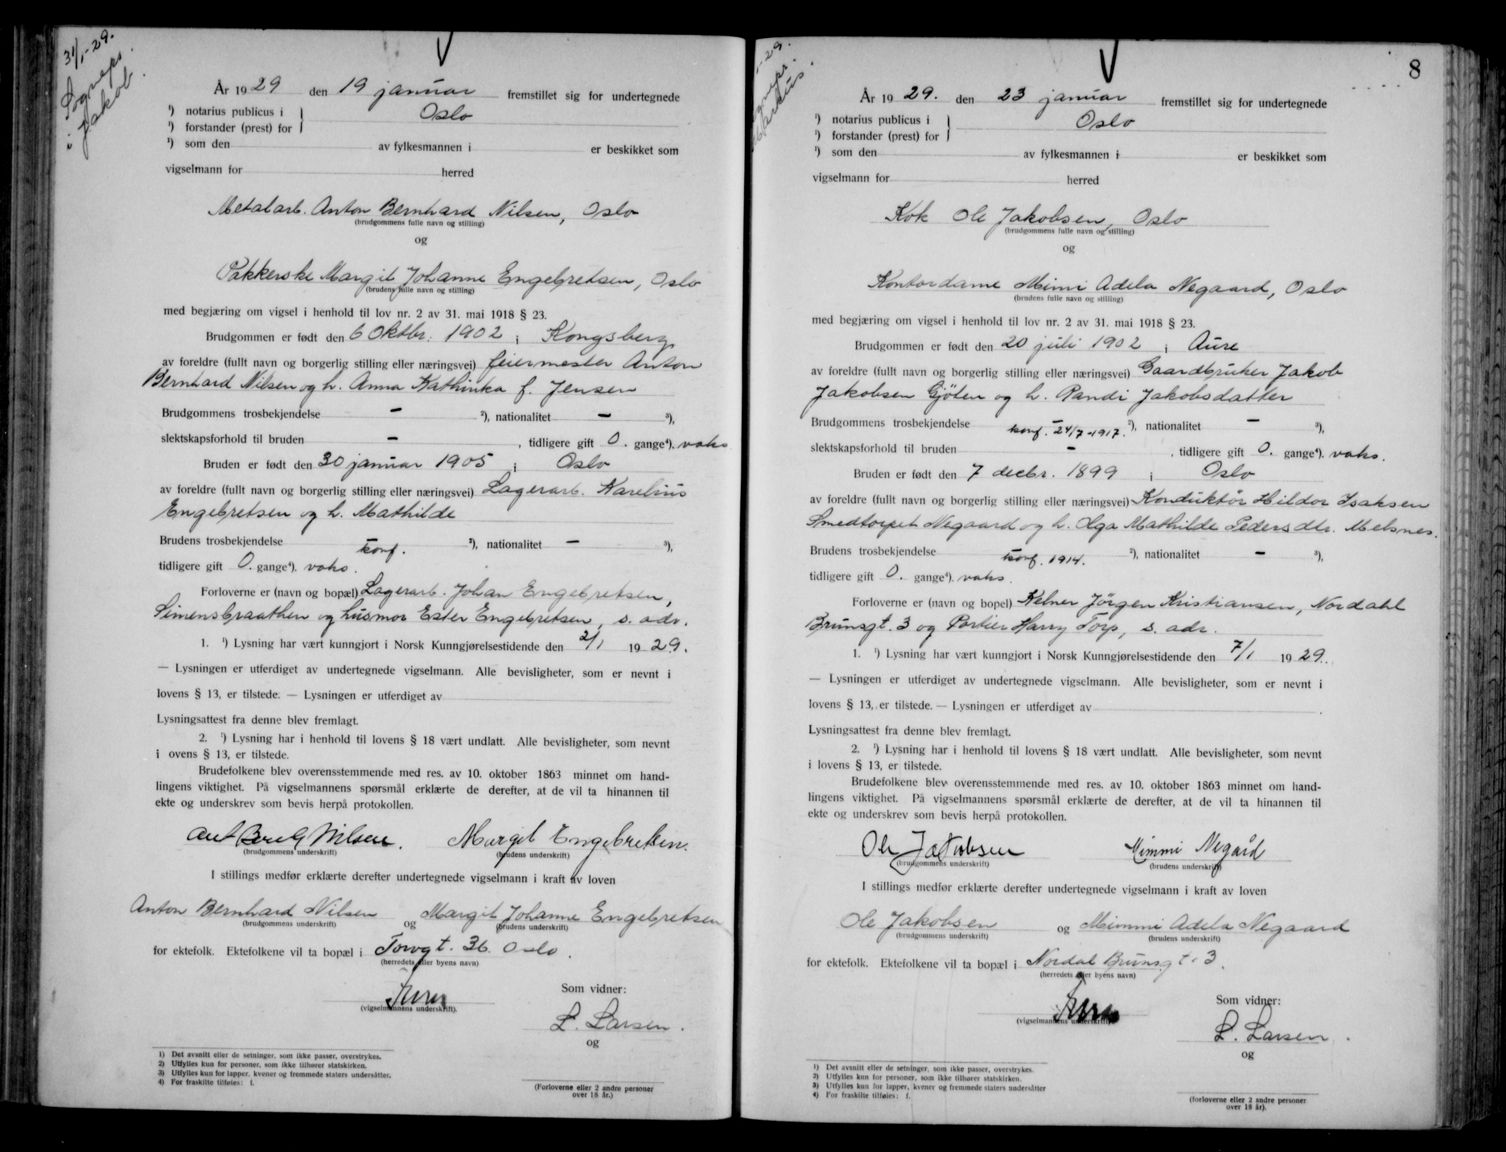 31/1-29.
Sogneps.
i Jakob.
År 1929 den 19 januar fremstillet sig for undertegnede
¹) notarius publicus i } Oslo
¹) forstander (prest) for
¹) som den av fylkesmannen i er beskikket som
vigselmann for herred
Metalarb. Anton Bernhard Nilsen, Oslo
(brudgommens fulle navn og stilling)
og
Pakkerske Margit Johanne Engebretsen, Oslo
(brudens fulle navn og stilling)
med begjæring om vigsel i henhold til lov nr. 2 av 31. mai 1918 § 23.
Brudgommen er født den 6 Oktbr. 1902 i Kongsberg
av foreldre (fullt navn og borgerlig stilling eller næringsvei) feiermester Anton
Bernhard Nilsen og h. Anna Kathinka f. Jensen
Brudgommens trosbekjendelse - ²), nationalitet - ³),
slektskapsforhold til bruden - , tidligere gift 0. gange⁴). vaks
Bruden er født den 30 januar 1905 i Oslo
av foreldre (fullt navn og borgerlig stilling eller næringsvei) Lagerarb. Karelius
Engebretsen og h. Mathilde
Brudens trosbekjendelse konf. ²), nationalitet - ³),
tidligere gift 0. gange⁴). vaks.
Forloverne er (navn og bopæl) Lagerarb. Johan Engebretsen,
Simensbraathen og husmor Ester Engebretsen, s. adr.
1. ¹) Lysning har vært kunngjort i Norsk Kunngjørelsestidende den 2/1 1929.
— Lysningen er utferdiget av undertegnede vigselmann. Alle bevisligheter, som er nevnt i
lovens § 13, er tilstede. — Lysningen er utferdiget av
Lysningsattest fra denne blev fremlagt.
2. ¹) Lysning har i henhold til lovens § 18 vært undlatt. Alle bevisligheter, som nevnt
i ovens § 13, er tilstede.
Brudefolkene blev overensstemmende med res. av 10. oktober 1863 minnet om hand-
lingens viktighet. På vigselmannens spørsmål erklærte de derefter, at de vil ta hinannen til
ekte og underskrev som bevis herpå protokollen.
Ant Bernh Nilsen. Margit Engebretsen.
(brudgommens underskrift) (brudens underskrift)
I stillings medfør erklærte derefter undertegnede vigselmann i kraft av loven
Anton Bernhard Nilsen og Margit Johanne Engebretsen
(brudgommens underskrift) (brudens underskrift)
for ektefolk. Ektefolkene vil ta bopæl i Torvgt. 36 Oslo.
(herredets eller byens navn)
(vigselmannens underskrift).
Som vidner:
L. Larsen.
og
1) Det avsnitt eller de setninger, som ikke passer, overstrykes.
2) Utfylles kun for personer, som ikke tilhører statskirken.
3) Utfylles kun for lapper, kvener og fremmede staters undersåtter.
4) For fraskilte tilføies: f.
(Forloverne eller 2 andre personer
over 18 år.)
8
-29.
Markus.
År 1929. den 23 januar fremstillet sig for undertegnede
¹) notarius publicus i } Oslo
¹) forstander (prest) for
¹) som den av fylkesmannen i er beskikket som
vigselmann for herred
Kok Ole Jakobsen, Oslo
(brudgommens fulle navn og stilling)
og
Kontordame Mimi Adela Negaard, Oslo
(brudens fulle navn og stilling)
med begjæring om vigsel i henhold til lov nr. 2 av 31. mai 1918 § 23.
Brudgommen er født den 20 juli 1902 i Aure
av foreldre (fullt navn og borgerlig stilling eller næringsvei) Gaardbruker Jakob
Jakobsen Gjölen og h. Randi Jakobsdatter
Brudgommens trosbekjendelse - konf. 24/7-1917. ²), nationalitet - ³),
slektskapsforhold til bruden - , tidligere gift 0. gange⁴). vaks.
Bruden er født den 7 decbr. 1899 i Oslo
av foreldre (fullt navn og borgerlig stilling eller næringsvei) Konduktör Hildor Isaksen
Smedtorpet Negaard og h. Olga Mathilde Pedersdtr. Melsnes.
Brudens trosbekjendelse konf. 1914. ²), nationalitet - ³),
tidligere gift 0. gange⁴). vaks.
Forloverne er (navn og bopel) Kelner Jörgen Kristiansen, Nordahl
Brunsgt. 3 og Portier Harry Torp, s. adr.
1. ¹) Lysning har vært kunngjort i Norsk Kunngjørelsestidende den 7/1 1929.
— Lysningen er utferdiget av undertegnede vigselmann. Alle bevisligheter, som er nevnt i
lovens § 13, er tilstede. — Lysningen er utferdiget av
Lysningsattest fra denne blev fremlagt.
2. ¹) Lysning har i henhold til lovens § 18 vært undlatt. Alle bevisligheter, som nevnt
i lovens § 13, er tilstede.
Brudefolkene blev overensstemmende med res. av 10. oktober 1863 minnet om hand-
lingens viktighet. På vigselmannens spørsmål erklærte de derefter, at de vil ta hinannen til
ekte og underskrev som bevis herpå protokollen.
Ole Jakobsen Mimmi Negård
(brudgommens underskrift) (brudens underskrift)
I stillings medfør erklærte derefter undertegnede vigselmann i kraft av loven
Ole Jakobsen og Mimmi Adela Negaard
(brudgommens underskrift) (brudens underskrift)
for ektefolk. Ektefolkene vil ta bopæl i Nordal Brunsgt. 3.
(herredets eller byens navn)
(vigselmannens underskrift)
Som vidner:
L. Larsen.
og
1) Det avsnitt eller de setninger, som ikke passer, overstrykes.
2) Utfylles kun for personer, som ikke tilhører statskirken.
3) Utfylles kun for lapper, kvener og fremmede staters undersåtter
4) For fraskilte tilføies: f.
(forloverne eller 2 andre personer
over 18 år).